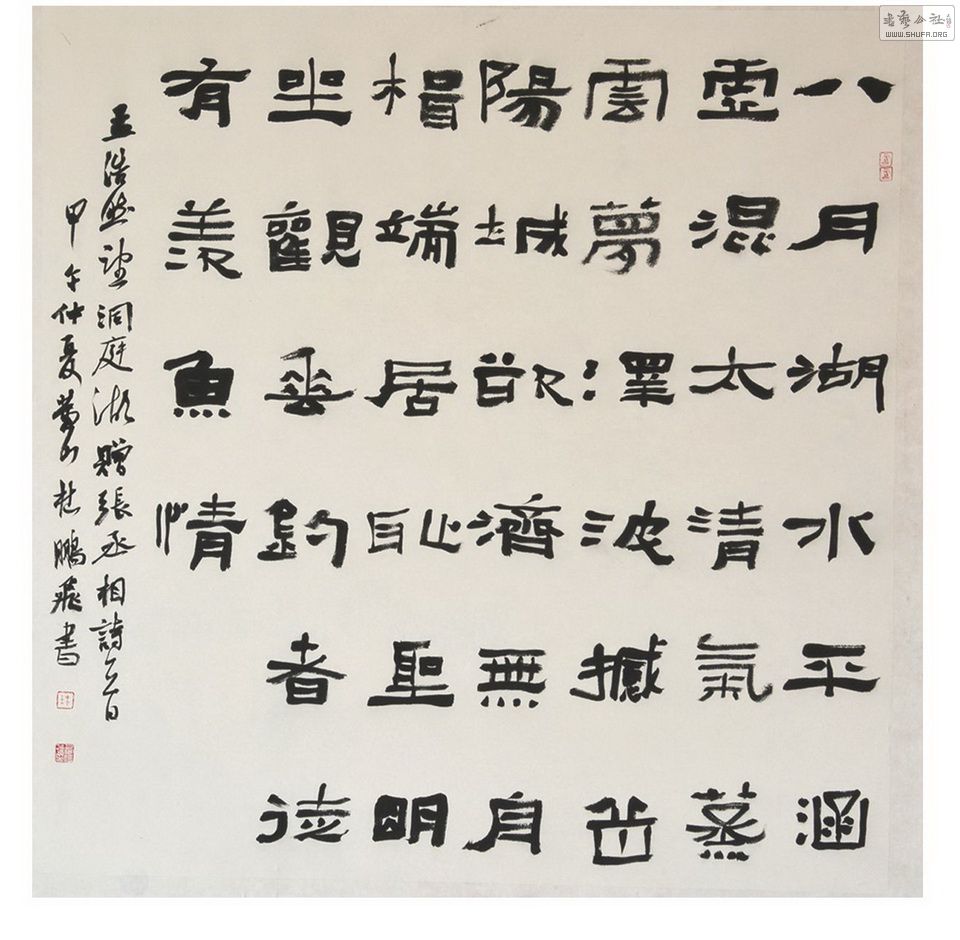 八月湖水平涵
虛混太清氣蒸
雲夢澤波撼岳
陽城欲濟無舟
楫端居恥聖明
坐觀垂釣者徒
有羨魚情
孟浩然望洞庭湖贈張丞相詩一首
甲午仲夏杜鵬飛書
書藝公社
WWW.SHUFA.ORG